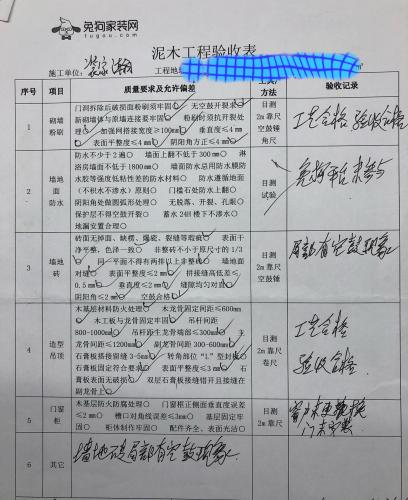 兔狗家装网
tugou.com
泥木工程验收表
施工单位:
工程地
序号 项目 质量要求及允许偏差 方法 验收记录
1 砌墙粉刷
门洞拆除后破损面粉刷须牢固 无空鼓开裂
新砌墙体与原墙连接要牢固 粉刷时须抗开裂处
理 加强网搭接宽度≥100mm 垂直度≤4mm
表面平整度≤4mm 阴阳角≤4mm
目测
2m靠尺
空鼓锤
角尺
工艺合格 验收合格
2 墙地面防水
防水不少于2遍 墙面上翻不低于300mm 淋
浴房墙面不低于1800mm 墙面防水总用防水膜防
水胶等强度低粘性差的防水材料 防水遵循地面
(不积水不渗水)原则 门槛石处防水上翻
阴阳角处做圆弧形处理 无脱落、开裂、孔眼
保护层不得空鼓开裂 蓄水24H楼下不渗水
地漏安置合理
目测
试验
兔狗平台未参与
3 墙地砖
砖面无掉面、缺楞、爆瓷、裂缝等瑕疵 表面干
净平整,色泽一致 非整砖不小于原尺寸的1/3
同一平面不得有两排以上非整砖 墙地面
对缝 表面平整度≤2mm 拼接缝高低差≤
0.5mm 垂直度≤2mm 缝隙均匀对直
阴阳角≤2mm 空鼓合格
目测
2m靠尺
空鼓锤
局部有空鼓现象
4 造型吊顶
木基层材料防火处理 木龙骨固定间距≤600mm
木工板与龙骨固定牢固 吊杆间距
800-1000mm 吊杆距主龙骨端部≤300mm 主
龙骨间距≤1200mm 副龙骨间距300-600mm
石膏板搭接留缝3-5mm 转角部位"L"型封板
石膏板固定符合要求 表面平整度≤3mm 石
膏板表面无破损 双层石膏板接缝错开且接缝在
副龙骨上
目测
2m靠尺
卷尺
工艺合格
验收合格
5 门窗柜
木基层防火防腐处理 门窗框正侧面垂直度误差
≤2mm 槽口对角线误差≤3mm 基层固定牢
固 柜体制作牢固 配件齐全、表面光洁
目测
2m靠尺
窗户未更换
门未安装
6 其它 墙地砖局部有空鼓现象